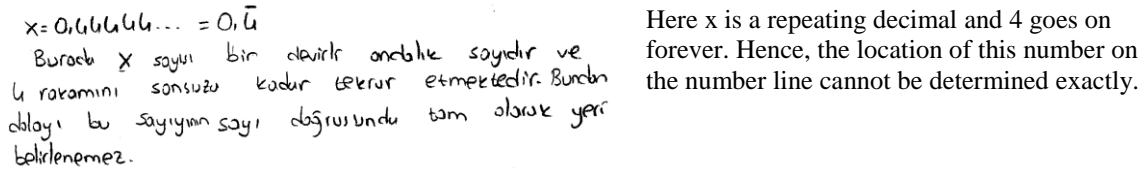 x = 0,44444... = 0,4̅
Burada x sayısı bir devirli ondalık sayıdır ve
4 rakamını sonsuza kadar tekrar etmektedir. Bundan
dolayı bu sayıyının sayı doğrusunda tam olarak yeri
belirlenemez.
Here x is a repeating decimal and 4 goes on
forever. Hence, the location of this number on
the number line cannot be determined exactly.